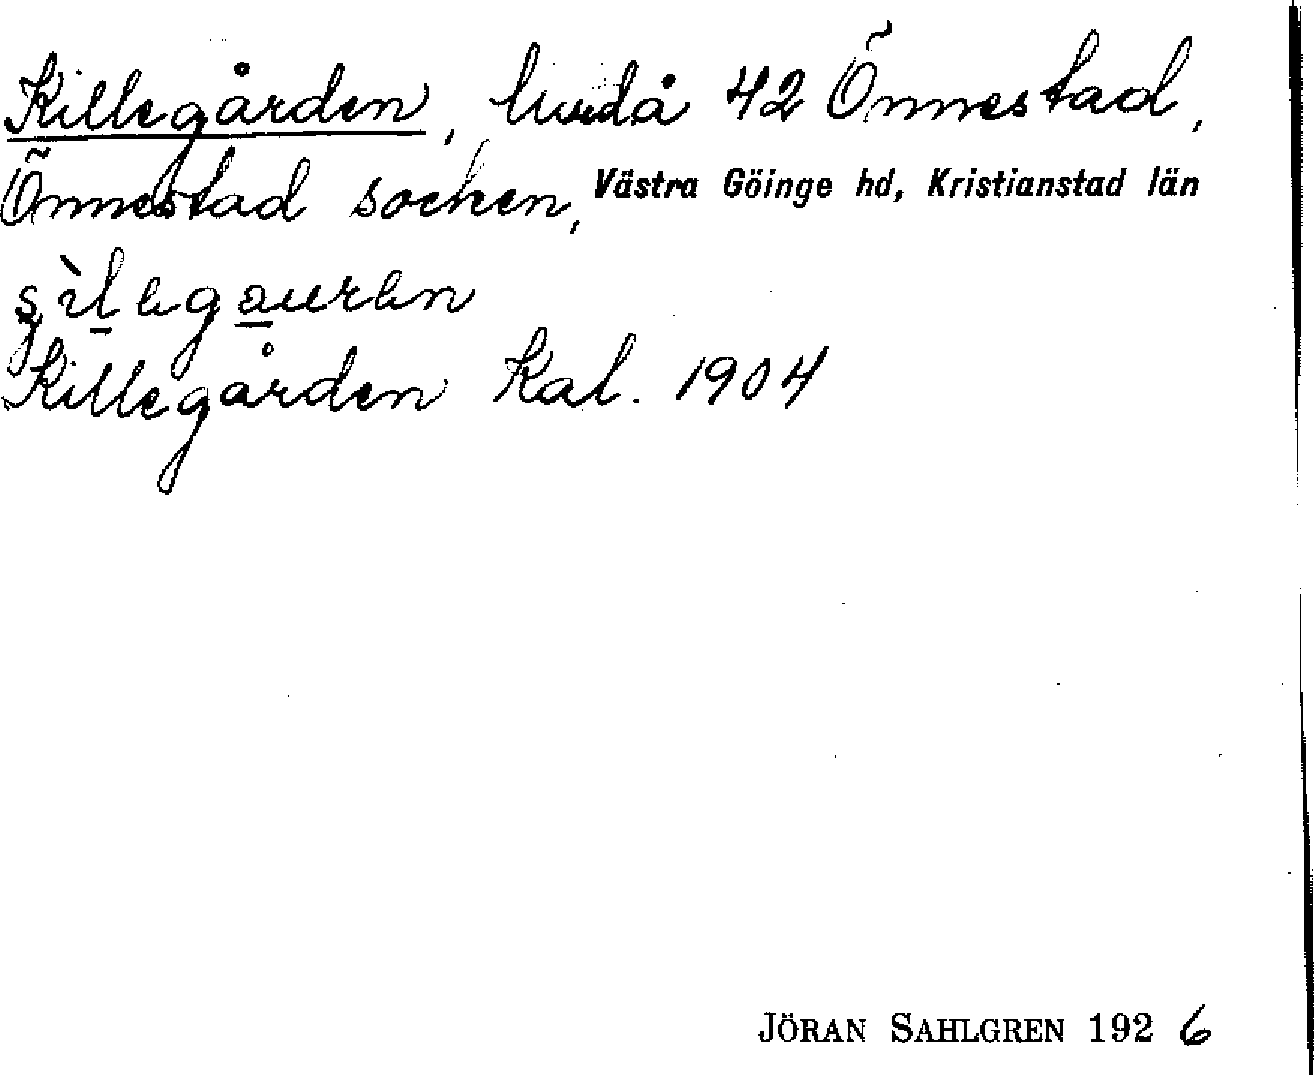 Killegården, 42 Önnestad,
Önnestad socken, Västra Göinge hd, Kristianstad län
Killegården Kal. 1904
JÖRAN SAHLGREN 1926